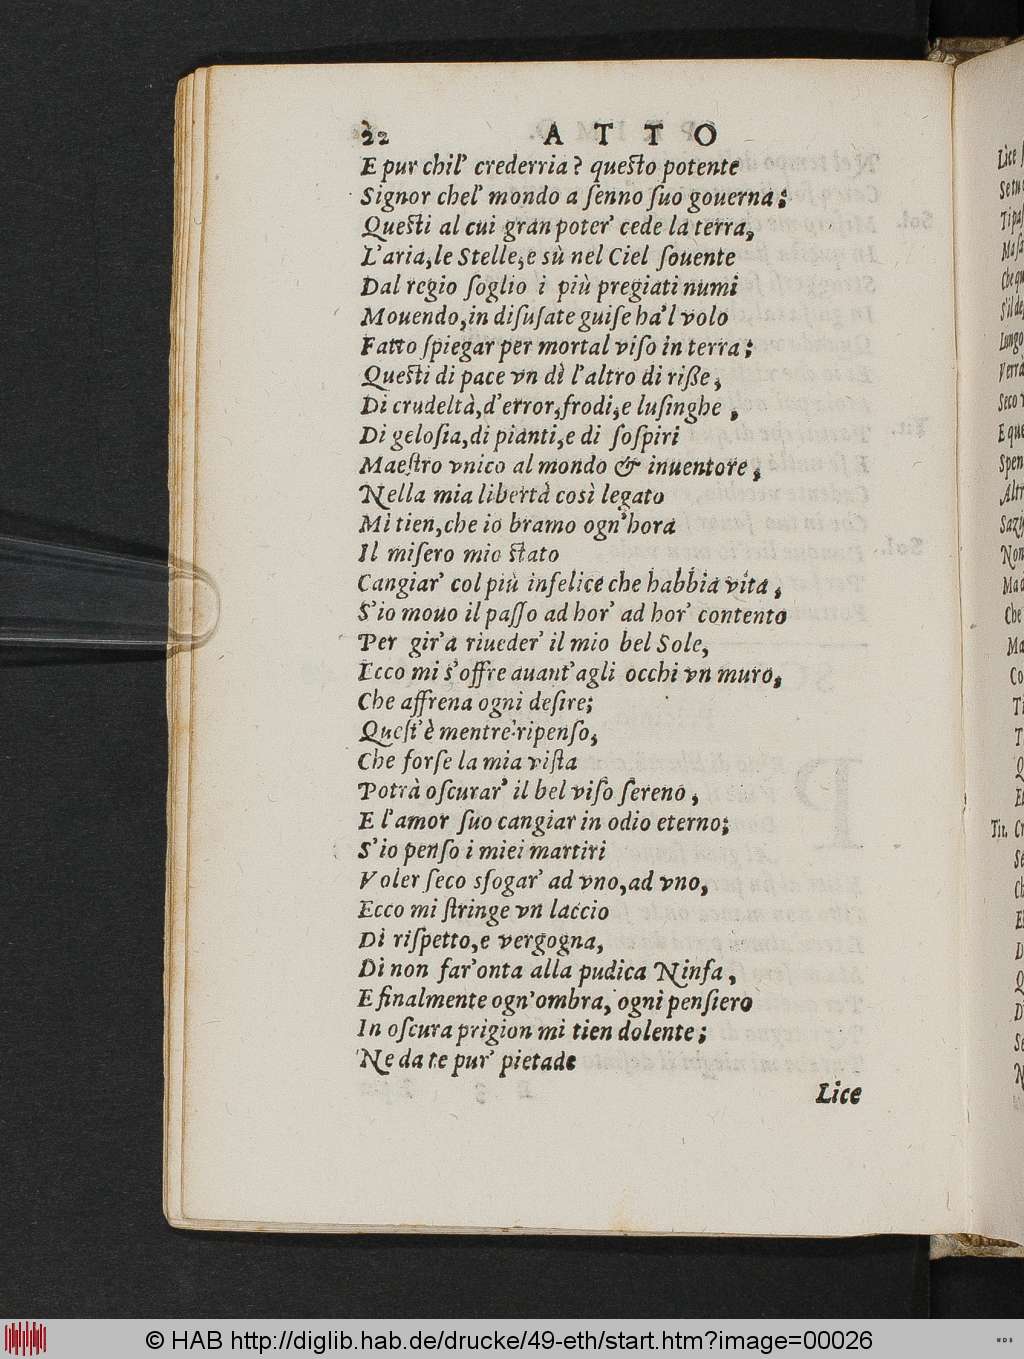 22 ATTO
E pur chil' crederria? questo potente
Signor chel' mondo a ſenno ſuo gouerna;
Questi al cui gran poter' cede la terra,
L'aria,le Stelle,e sù nel Ciel ſouente
Dal regio ſoglio i più pregiati numi
Mouendo,in diſuſate guiſe ha'l volo
Fatto ſpiegar per mortal viſo in terra;
Questi di pace vn dì l'altro di riſſe,
Di crudeltà,d'error,frodi,e luſinghe,
Di geloſia,di pianti,e di ſoſpiri
Maeſtro vnico al mondo & inuentore,
Nella mia libertà così legato
Mi tien,che io bramo ogn'hora
Il miſero mio ſtato
Cangiar' col più infelice che habbia vita,
S'io mouo il paſſo ad hor' ad hor' contento
Per gir'a riueder' il mio bel Sole,
Ecco mi s'offre auant'agli occhi vn muro,
Che affrena ogni deſire;
Queſt'è mentre'ripenſo,
Che forſe la mia viſta
Potrà oſcurar' il bel viſo ſereno,
E l'amor ſuo cangiar in odio eterno;
S'io penſo i miei martiri
Voler ſeco sfogar' ad vno,ad vno,
Ecco mi ſtringe vn laccio
Di riſpetto,e vergogna,
Di non far'onta alla pudica Ninfa,
E finalmente ogn'ombra, ogni penſiero
In oſcura prigion mi tien dolente;
Ne da te pur' pietade
Lice
Lice
Tit.
© HAB http://diglib.hab.de/drucke/49-eth/start.htm?image=00026